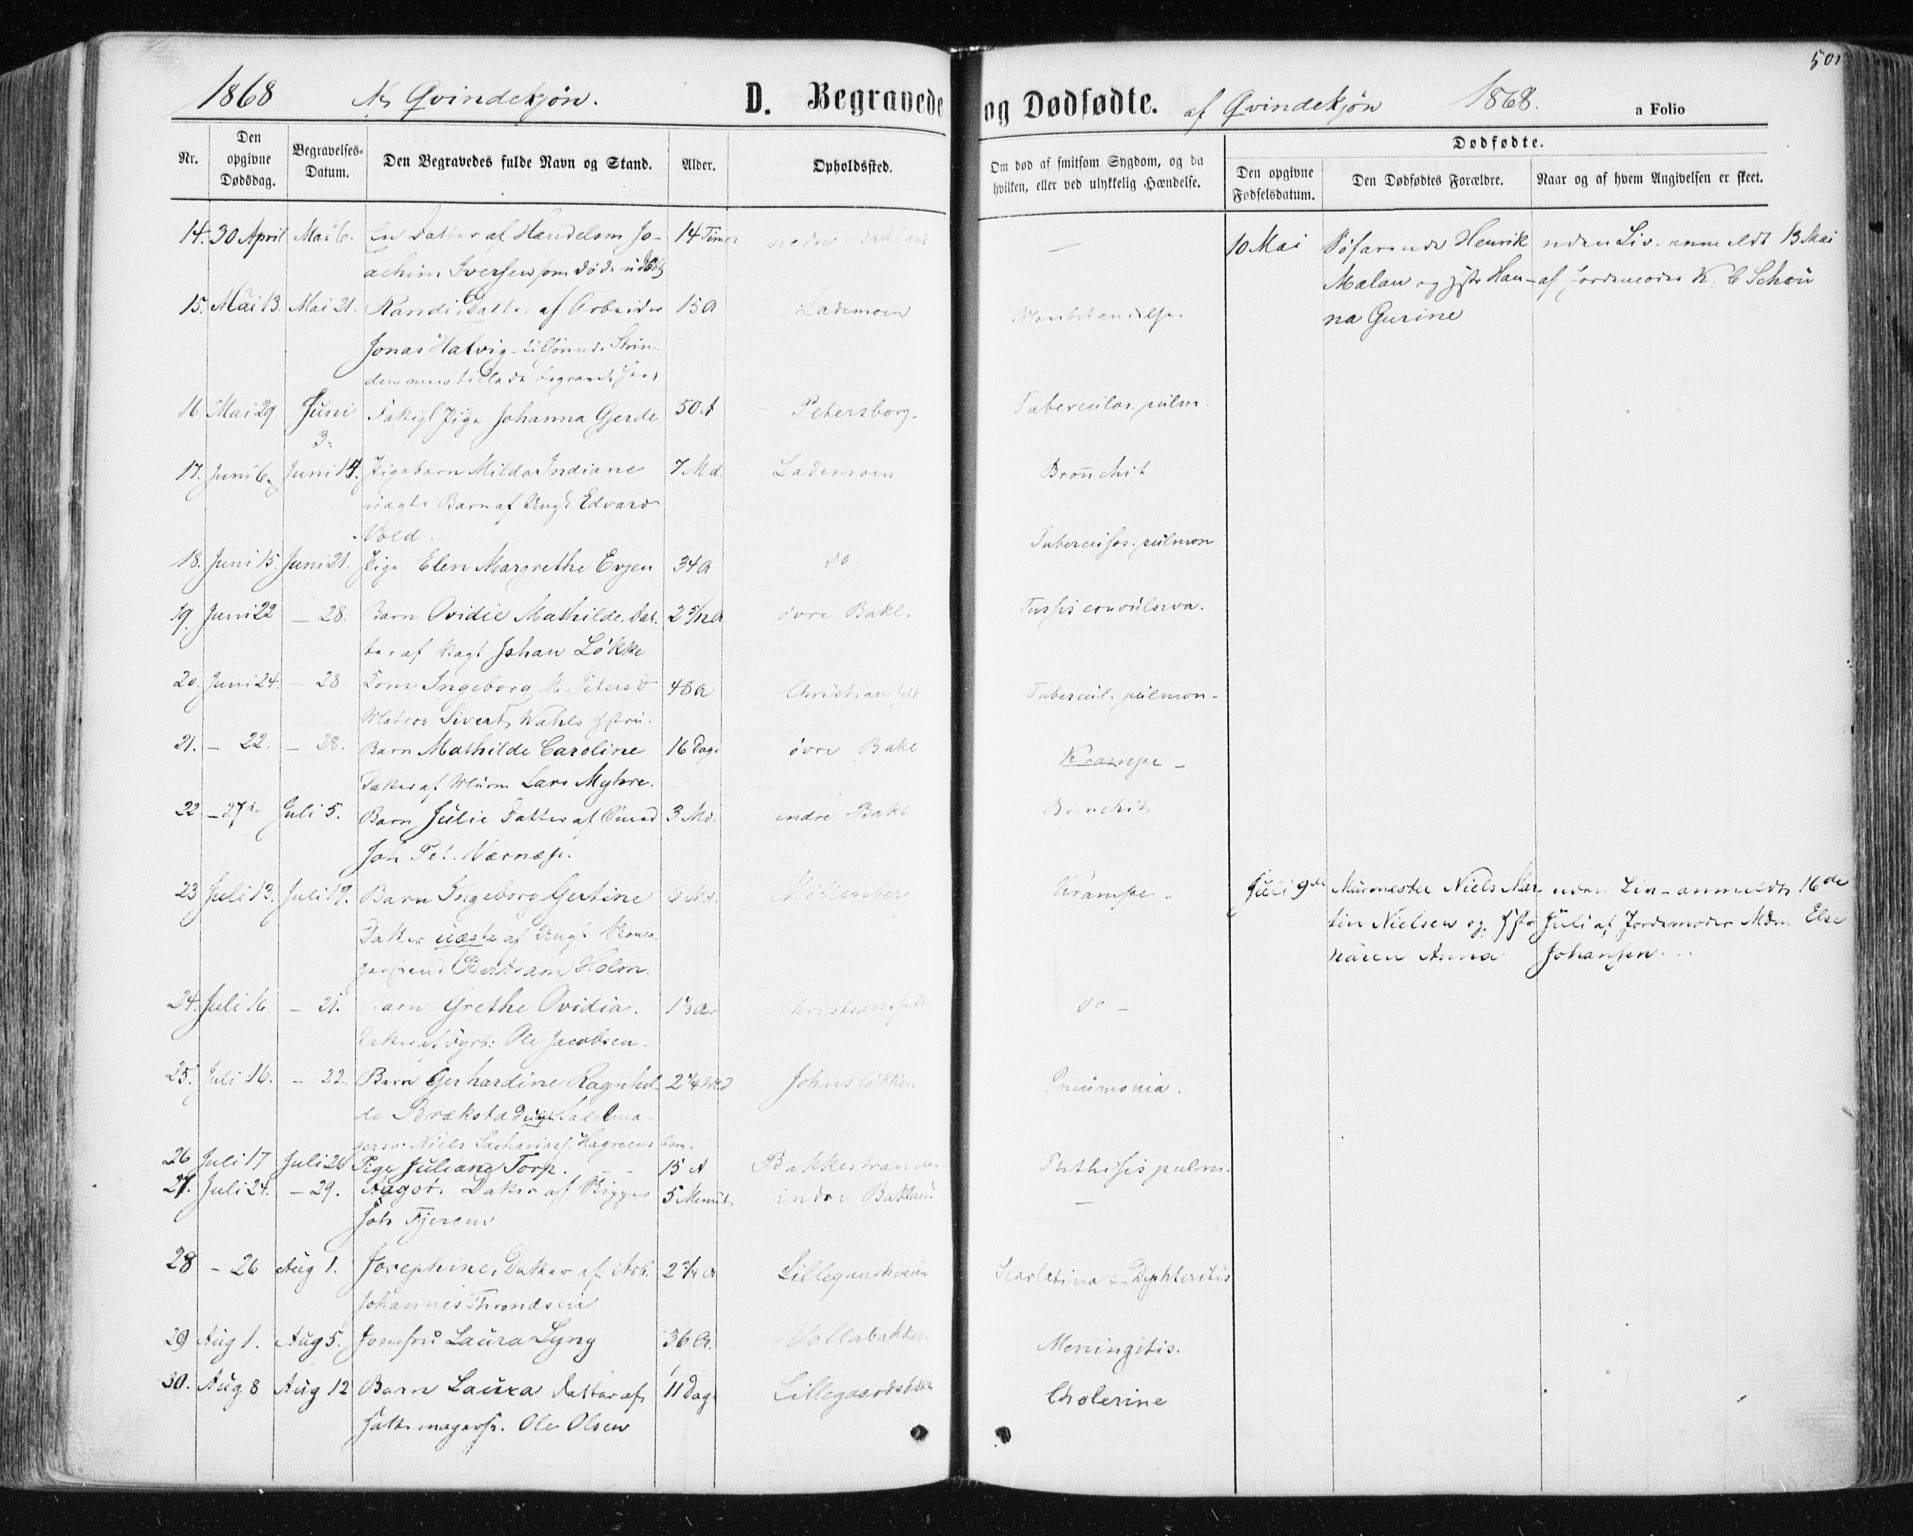 1868 Af Qvindekjøn. D. Begravede og Dødfødte. af Qvindekjøn 1868. a Folio 501
Nr. Den opgivne Dødsdag. Begravelses-Datum. Den Begravedes fulde Navn og Stand. Alder. Opholdssted. Om død af smitsom Sygdom, og da hvilken, eller ved ulykkelig Hændelse. Dødfødte.
Den opgivne Fødselsdatum. Den Dødfødtes Forældre. Naar og af hvem Angivelsen er skeet.
14. 30 April Mai 6. En Datter af Handelsm Jo- 14 Timer nedre Bakland — 10 Mai Henrik uden Liv. anmeldt 13 Mai
achim Iversen som døde Malan og Hstr Han- af Jordemoder K. C Schøn
15. Mai 13. Mai 21. Randi Datter af Arbeider 15 A Lademoen na Gurine
Jonas Halvig
begravet her
16 Mai 29. Juni Pige Johanna Gjerde 50 A Petersborg. Tuberculos. pulm.
3.
17. Juni 6. Juni 14. Pigebarn Milda Indiane 7 Md. Lademoen Bronchit
uægte Barn af Ungk Edvard
Vold.
18. Juni 15. Juni 21. Pige Elen Margrethe Evjen 34 A do. Tuberculos. pulmon.
19. Juni 22 — 28. Barn Ovidie Mathilde. Dat- 2 5/12 A øvre Bakl. Tussis convulsiva.
ter af Johan Løkke
20. Juni 24. — 28 Kone Ingeborg M. Petersd 48 A Christiansfeldt Tubercul. pulmon-
Matros Sivert Wahls Hstru.
21. — 22. — 28. Barn Mathilde Caroline 16 Dage øvre Bakl Krampe —
Datter af Lars Myhre.
22. — 27de Juli 5. Barn Julie Datter af 3 Md. indre Bakl Bronchit
Joh Pet. Værnæs.
23 Juli 13. Juli 19. Barn Ingeborg Gertine 6 Md. Møllenberg Krampe. Juli 9de Murmester Niels Mar- uden Liv — anmeldt 16de
Datter uægte af Ungk tin Nielsen og Hstr Juli af Jordemoder Mdm. Else
Bertram Holm. Karen Anna Johansen.
24. Juli 16. — 21. Barn Grethe Ovidia. Christiansfeldt do —
Datter af Ole Jacobsen.
25. Juli 16. — 22. Barn Gerhardine Ragnhil- Johnsløkken Pneumonia.
de Brækstad Sadelma-
gersv. Niels Hagreens
26 Juli 17 Juli 26 Pige Juliane Torp. 15 A Bakkestranden Phthisis pulm.
27. Juli 24. — 29. Datter af Bygger 5 Minut. indre Bakland —
Joh Fjerem
28 — 26 Aug 1. Josephine, Datter af Arb. Lillegaardsveien Scarlatina & Dyphteritis
Johannes Throndsen
29 Aug 1. Aug 5. Jomfru Laura Lyng 36 A. Vollabakken Meningitis.
30. Aug 8 Aug 12 Barn Laura Datter af 11 Dage Lillegaardsbakken Cholerine
Ole Olsen